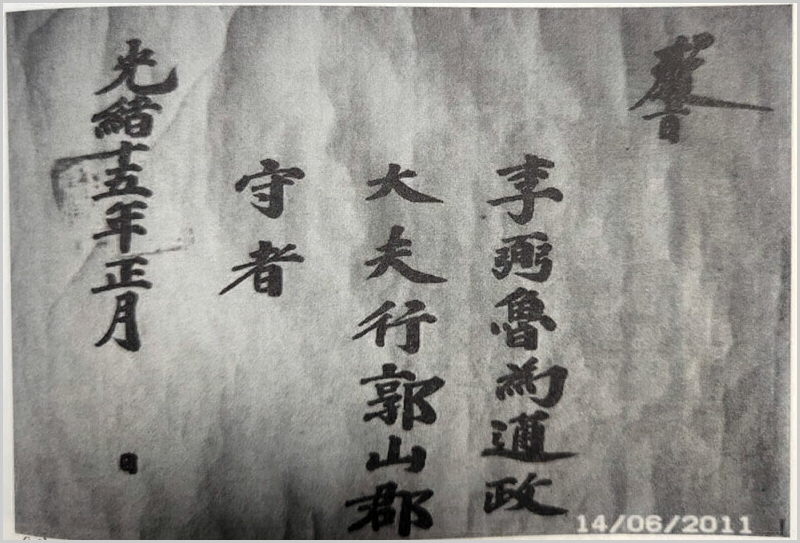 敎旨
李弼魯為通政
大夫行郭山郡
守者
光緖十五年正月 日
14/06/2011